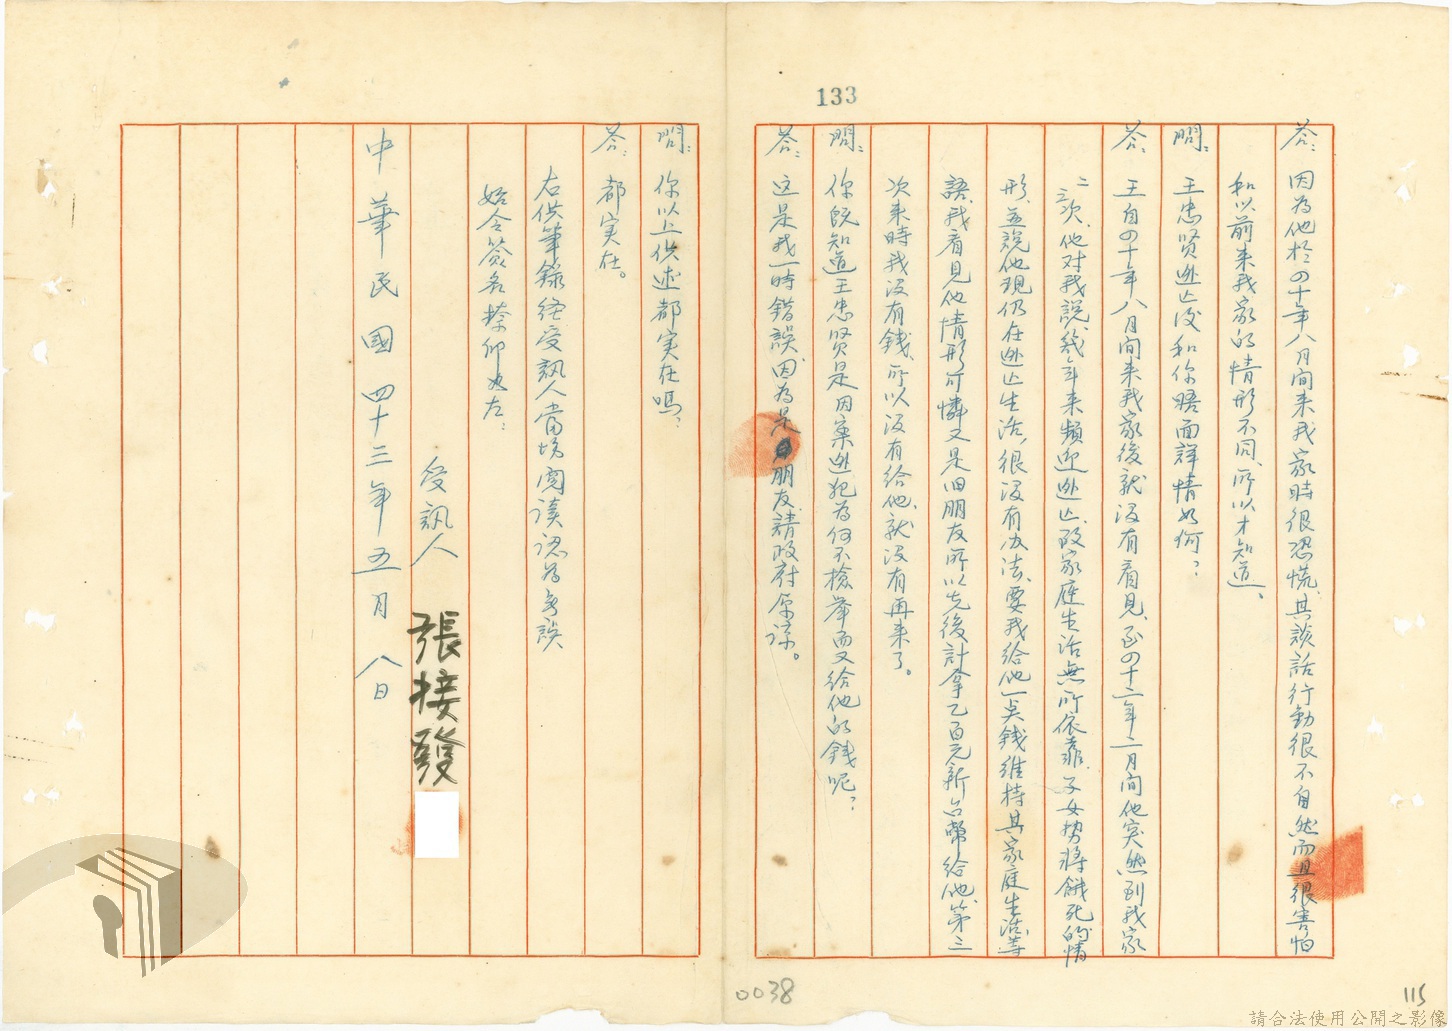 133
答：因為他於四十年八月间来我家時很恐慌、其談話行動很不自然而且很害怕
和以前来我家的情形不同、所以才知道、
問：王忠贤逃亡後和你晤面詳情如何？
答：王自四十年八月间来我家後就没有看見、至四十二年二月间他突然到我家
二三次、他对我説、幾年来頻迎逃亡、故家庭生活無所依靠、子女势將餓死的情
形、並説他現仍在逃亡生活、很没有办法、要我给他一点錢維持其家庭生活等
語、我看見他情形可憐又是旧朋友所以先後計拿乙百元新台幣给他、第三
次来時我没有錢、所以没有给他、就没有再来了。
問：你既知道王忠贤是因案逃犯為何不檢舉而又给他的錢呢？
答：这是我一時錯誤、因為是朋友、請政府原谅。
問：你以上供述都实在嗎？
答：都实在。
右供筆錄經受訊人當场閱读認為無誤
始令簽名捺印如左：
受訊人 張接發
中華民國四十三年五月八日
0038
115
請合法使用公開之影像